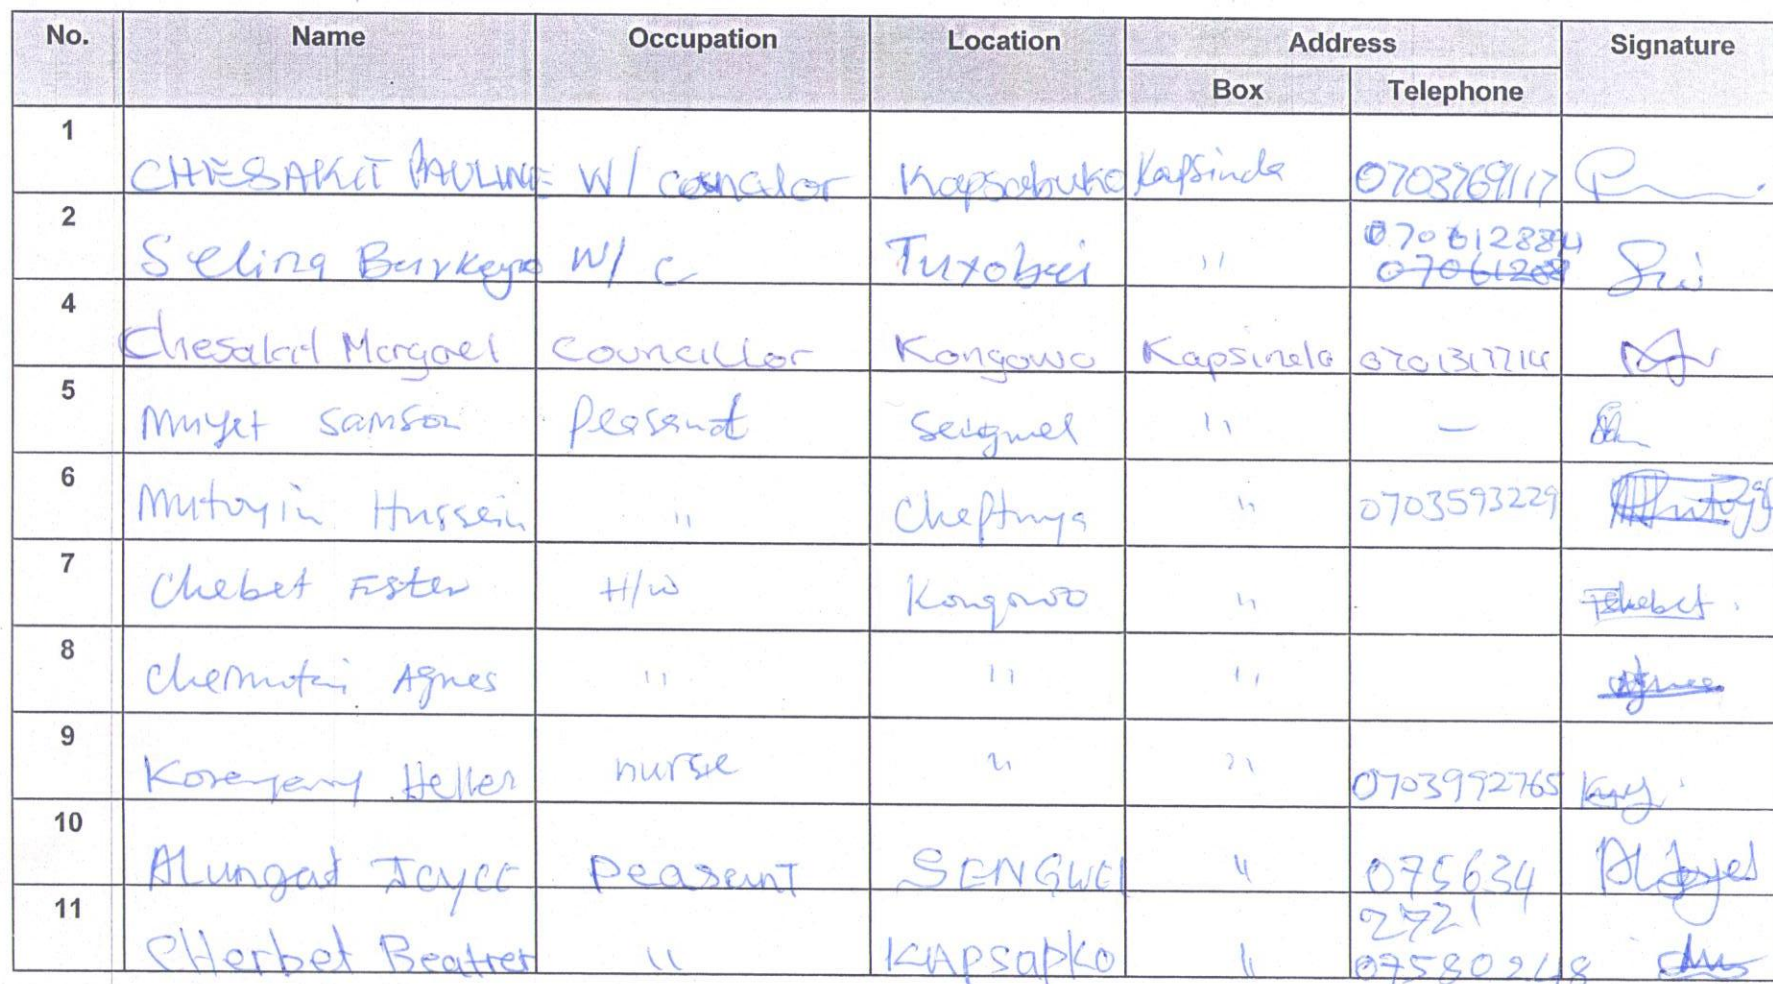 No. Name Occupation Location Address Signature
Box Telephone
1 CHESAKIT PAULINE W/ councilor Kapsabuko Kapsinda 0703769117
2 Selina W/ C 〃 070612884
0706120
4 Chesakit Margret Councillor Kongowo Kapsinda
5 Muyet Samson Peasant 〃 —
6 Mutoyin Hussein 〃 Cheptuya 〃 0703593229
7 Chebet Ester H/W Kongowo 〃 Echebet
8 Chemutai Agnes 〃 〃 〃 Agnes
9 Hellen nurse 〃 〃 0703992765
10 Alungat Joyce Peasent SENGWEL 〃 075634
2721
11 CHerbet Beatres 〃 KAPSAPKO 〃 07580248